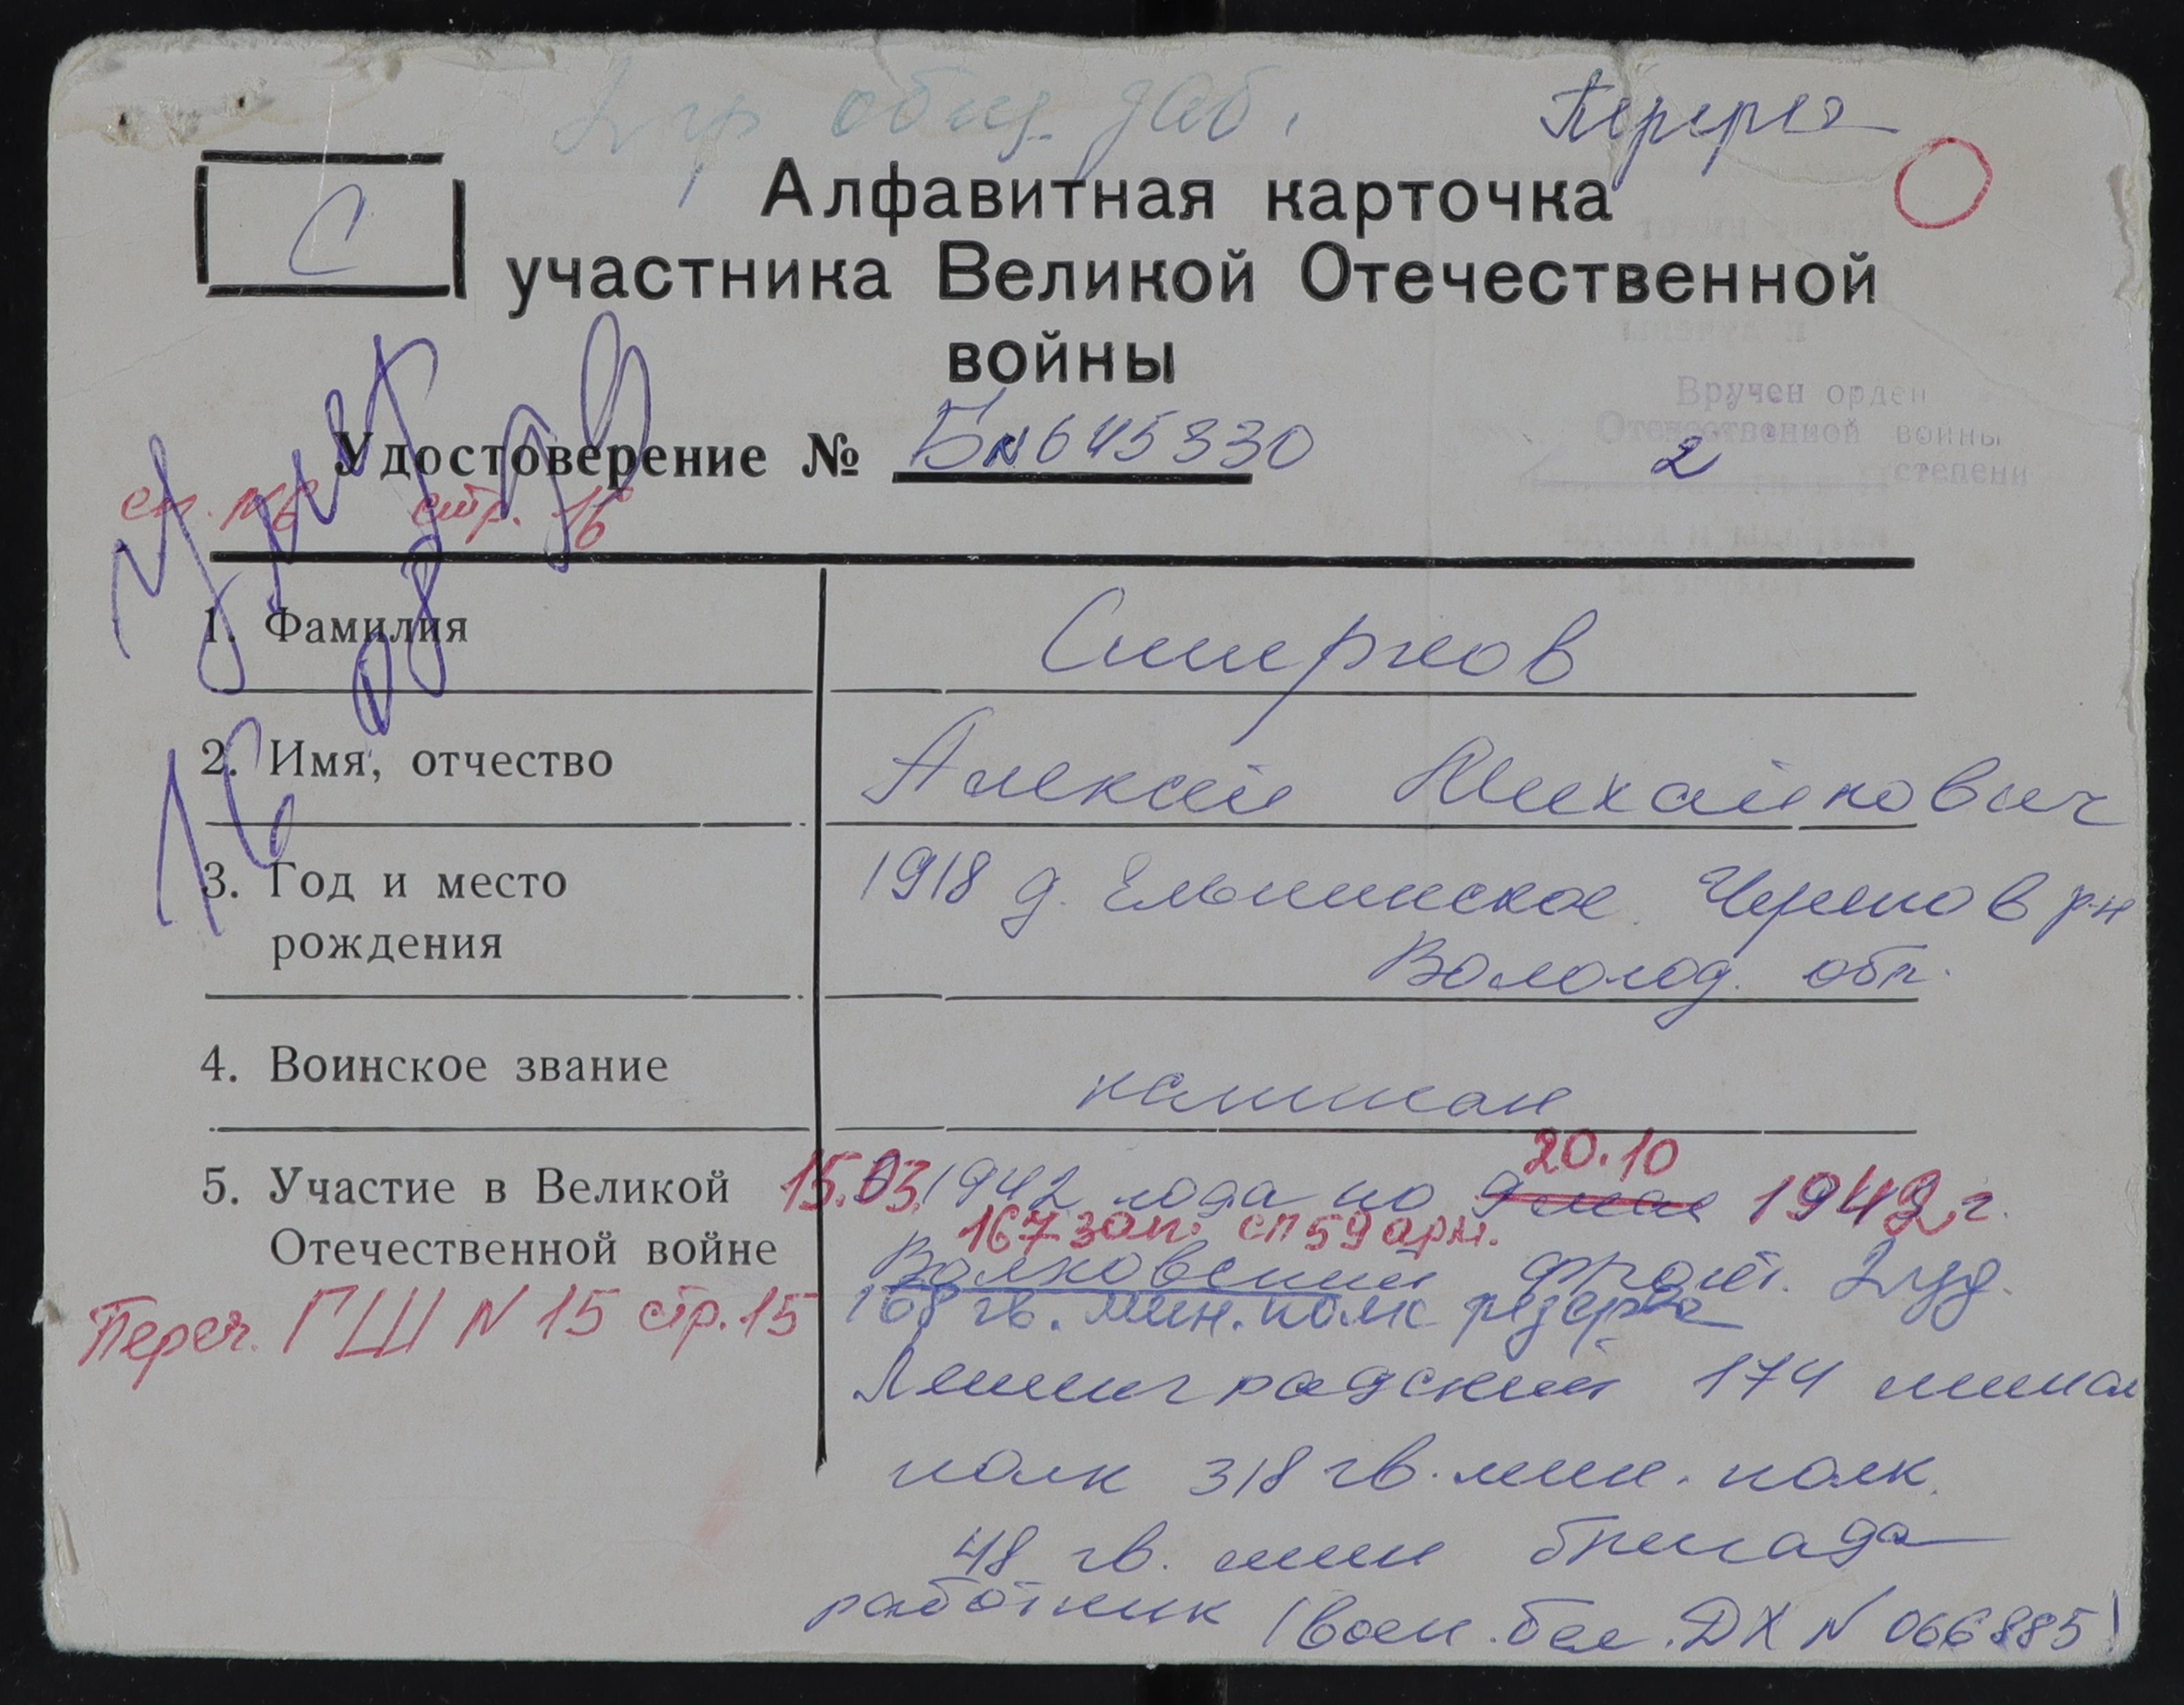 2 гр общ. заб.
Перерег
С
Алфавитная карточка
участника Великой Отечественной
войны
Вручен орден
Отечественной войны
2 степени
Удостоверение № Б N 645330
стр. 16
1. Фамилия Смирнов
2. Имя, отчество Алексей Михайлович
3. Год и место рождения 1918 д. Ельнинское Черепов р-н
Вологод. обл.
4. Воинское звание капитан
5. Участие в Великой Отечественной войне 15.03.1942 года по 9 мая 20.10 1942 г.
167 зап. сп 59 арм.
Волховский фронт. 2 уд.
168 гв. мин. полк резерва
Переч. ГШ N 15 стр. 15
Ленинградский 174 мином
полк 318 гв. мин. полк.
48 гв. мин бригада
работник (воен. бил. ДХ N 066885)